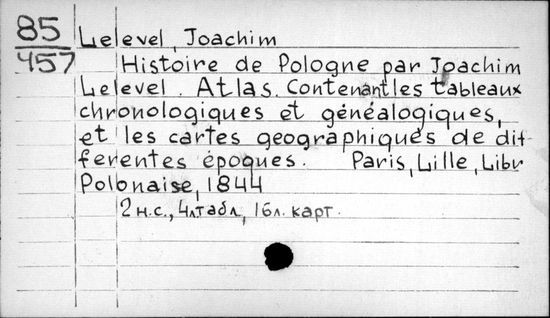 85 Lelevel, Joachim
457 Histoire de Pologne par Joachim
Lelevel. Atlas. Contenant les tableaux
chronologiques et généalogiques,
et les cartes geographiques de dif-
ferentes époques. Paris, Lille, Libr
Polonaise, 1844
2 н.с., 4л табл, 16л. карт.